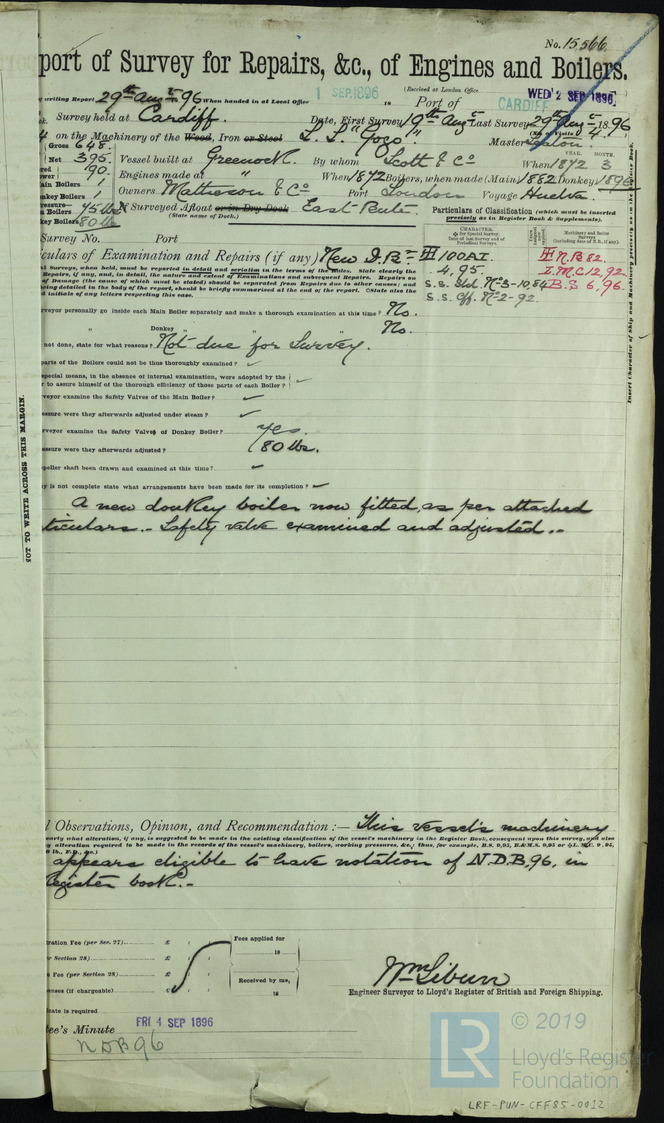 No. 15566
port of Survey for Repairs, &c., of Engines and Boilers.
(Received at London Office WED. 2 SEP. 1896
writing Report 29th Aug 1896 When handed in at Local Office 1 SEP. 1896 18 Port of CARDIFF
Survey held at Cardiff. Date, First Survey 19th Aug Last Survey 29th Aug 1896
(No. of Visits 4)
on the Machinery of the Wood, Iron or Steel S.S. "Goco" Master
Gross 648.
Net 395. Vessel built at Greenock. By whom Scott & Co When 1872 3
YEAR. MONTH.
90. Engines made at " When 1872 Boilers, when made (Main) 1882 Donkey 1896
ain Boilers 1 Owners Matheson & Co Port London Voyage Huelva
nkey Boilers 1
n Boilers 75 lbs If Surveyed Afloat or in Dry Dock East Bute.
(State name of Dock.)
key Boilers 80 lb
Particulars of Classification (which must be inserted
precisely as in Register Book & Supplements).
Survey No. Port
CHARACTER.
✠ for Special Survey.
Date of last Survey and of
Periodical Surveys.
Machinery and Boiler
Surveys
(including date of N.B., if any).
culars of Examination and Repairs (if any) New D.Br
100 A1.
4,95.
S.S. Off. No 2-92.
N.B 82.
L.M.C 12,92
B.S 6,96.
al Surveys, when held, must be reported in detail and seriatim in the terms of the Rules. State clearly the
Repairs, if any, and, in detail, the nature and extent of Examinations and subsequent Repairs. Repairs on
of Damage (the cause of which must be stated) should be separated from Repairs due to other causes; and
being detailed in the body of the report, should be briefly summarised at the end of the report. State also the
d initials of any letters respecting this case.
rveyor personally go inside each Main Boiler separately and make a thorough examination at this time? No.
" Donkey " " No.
not done, state for what reasons? Not due for Survey.
parts of the Boilers could not be thoroughly examined?
special means, in the absence of internal examination, were adopted by the
r to assure himself of the thorough efficiency of those parts of each Boiler?
veyor examine the Safety Valves of the Main Boiler?
essure were they afterwards adjusted under steam?
rveyor examine the Safety Valves of Donkey Boiler? yes.
essure were they afterwards adjusted? 80 lbs.
peller shaft been drawn and examined at this time?
y is not complete state what arrangements have been made for its completion?
A new donkey boiler now fitted, as per attached
ticulars.- Safety valve examined and adjusted.-
NOT TO WRITE ACROSS THIS MARGIN.
Insert Character of Ship and Machinery precisely as in the Register Book.
l Observations, Opinion, and Recommendation :— This vessel's machinery
early what alteration, if any, is suggested to be made in the existing classification of the vessel's machinery in the Register Book, consequent upon this survey, and also
y alteration required to be made in the records of the vessel's machinery, boilers, working pressures, &c.; thus, for example, B.S. 9,95, B.&M.S. 9,95 or L.M.C. 9,95,
appears eligible to have notation of N.D.B,96, in
Register book.-
tration Fee (per Sec. 27) £
r Section 28) £
Fee (per Section 28) £
enses (if chargeable) £
Fees applied for
18
Received by me,
18
Wm Siburn
Engineer Surveyor to Lloyd's Register of British and Foreign Shipping.
cate is required
ee's Minute FRI 4 SEP 1896
NDB96
LR
© 2019
Lloyd's Register
Foundation
LRF-PUN-CFF85-0012